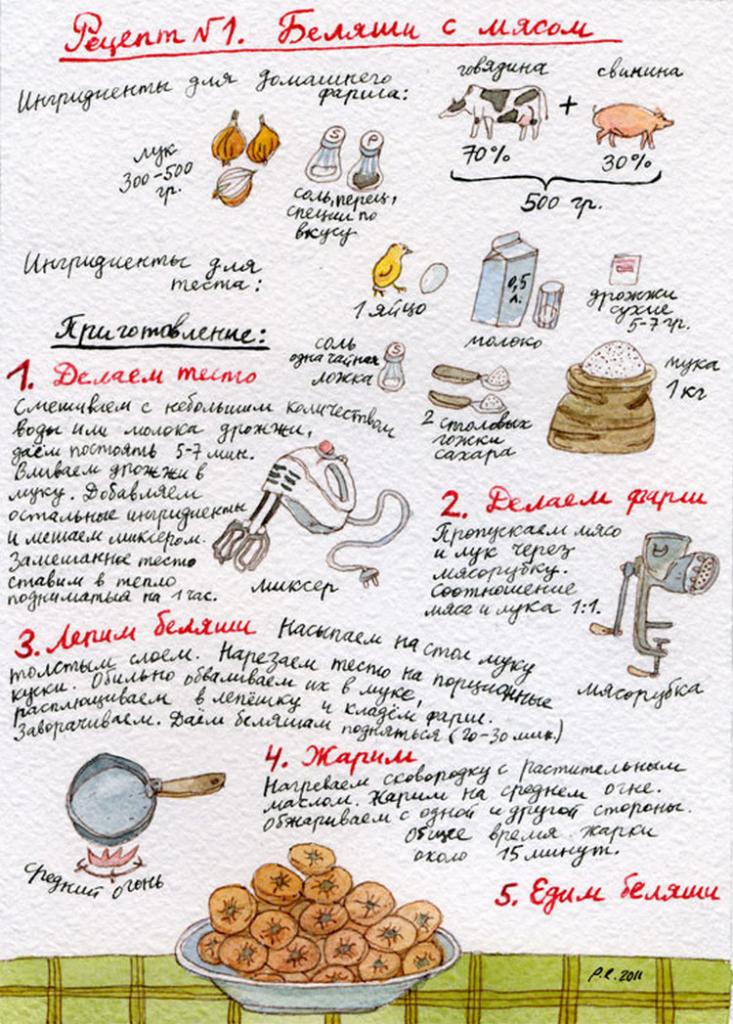 Рецепт №1. Беляши с мясом
Ингридиенты для домашнего
фарша:
говядина
+
свинина
70%
30%
500 гр.
лук
300-500
гр.
S
P
соль, перец,
специи по
вкусу
Ингридиенты для
теста:
1 яйцо
0,5
л.
молоко
дрожжи
сухие
5-7 гр.
соль
одна чайная
ложка
S
2 столовых
ложки
сахара
мука
1 кг
Приготовление:
1. Делаем тесто
Смешиваем с небольшим количеством
воды или молока дрожжи,
даём постоять 5-7 мин.
Вливаем дрожжи в
муку. Добавляем
остальные ингридиенты
и мешаем миксером.
Замешанное тесто
ставим в тепло
подниматься на 1 час.
миксер
2. Делаем фарш
Пропускаем мясо
и лук через
мясорубку.
Соотношение
мяса и лука 1:1.
мясорубка
3. Лепим беляши Насыпаем на стол муку
толстым слоем. Нарезаем тесто на порционные
куски. Обильно обваливаем их в муке,
расплющиваем в лепёшку и кладём фарш.
Заворачиваем. Даём беляшам подняться (20-30 мин.)
4. Жарим
Нагреваем сковородку с растительным
маслом. Жарим на среднем огне.
Обжариваем с одной и другой стороны.
Общее время жарки
около 15 минут.
Средний огонь
5. Едим беляши
P.R. 2011